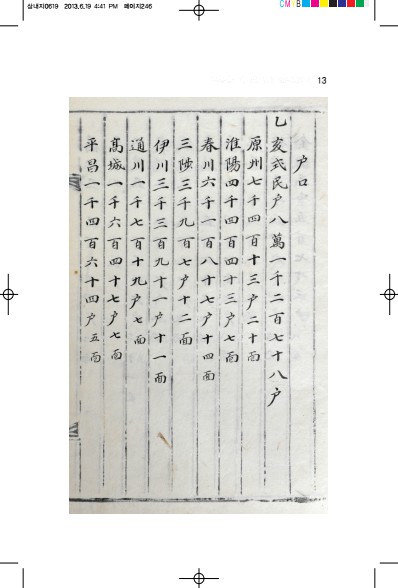 삼내지0619 2013.6.19 4:41 PM 페이지246
CMYB
13
戶口
乙亥式民戶八萬一千二百七十八戶
原州七千四百十三戶二十面
淮陽四千四百四十三戶七面
春川六千一百八十七戶十四面
三陟三千九百七戶十二面
伊川三千三百九十一戶十一面
道川一千七百十九戶七面
高城一千六百四十七戶七面
平昌一千四百六十四戶五面